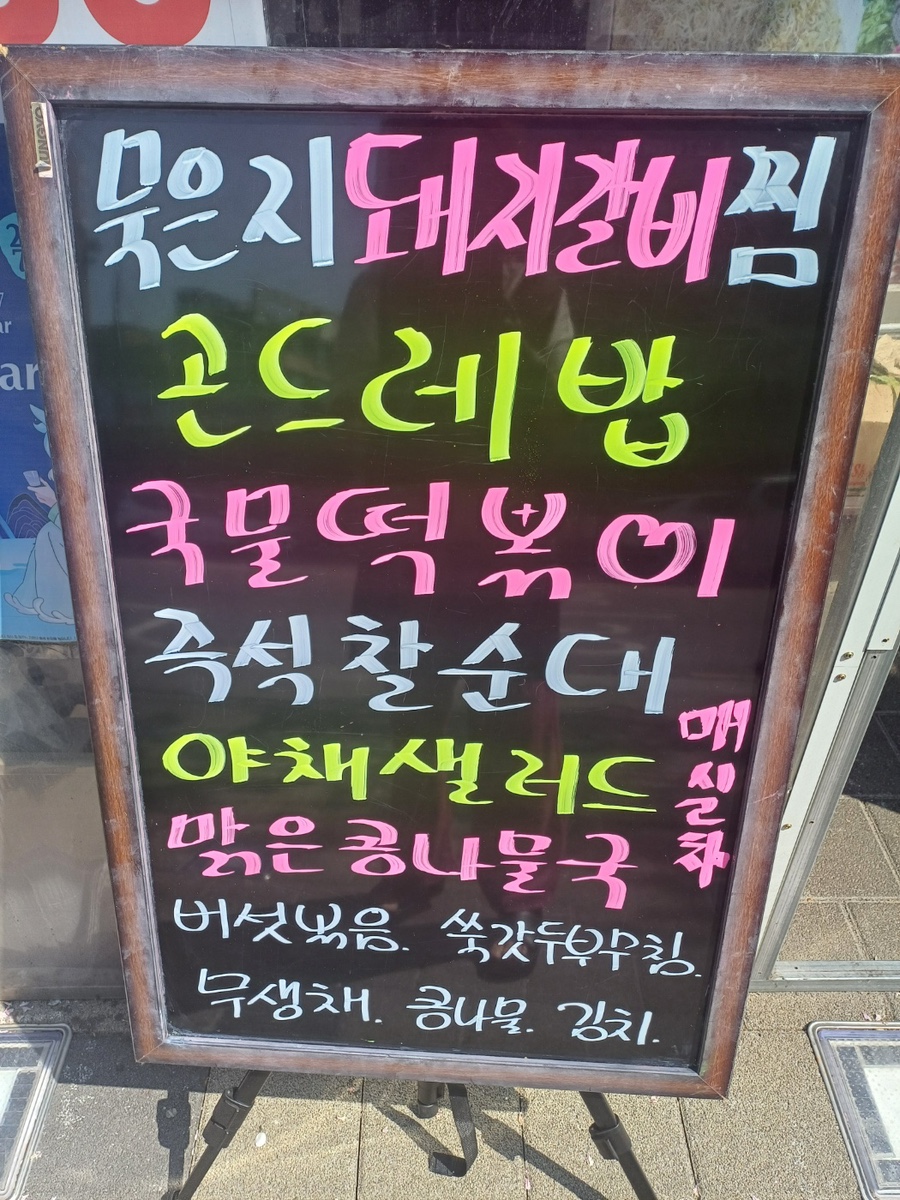 묵은지돼지갈비찜
곤드레밥
국물떡볶이
즉석찰순대
야채샐러드
매실차
맑은콩나물국
버섯볶음. 쑥갓두부무침.
무생채. 콩나물. 김치.